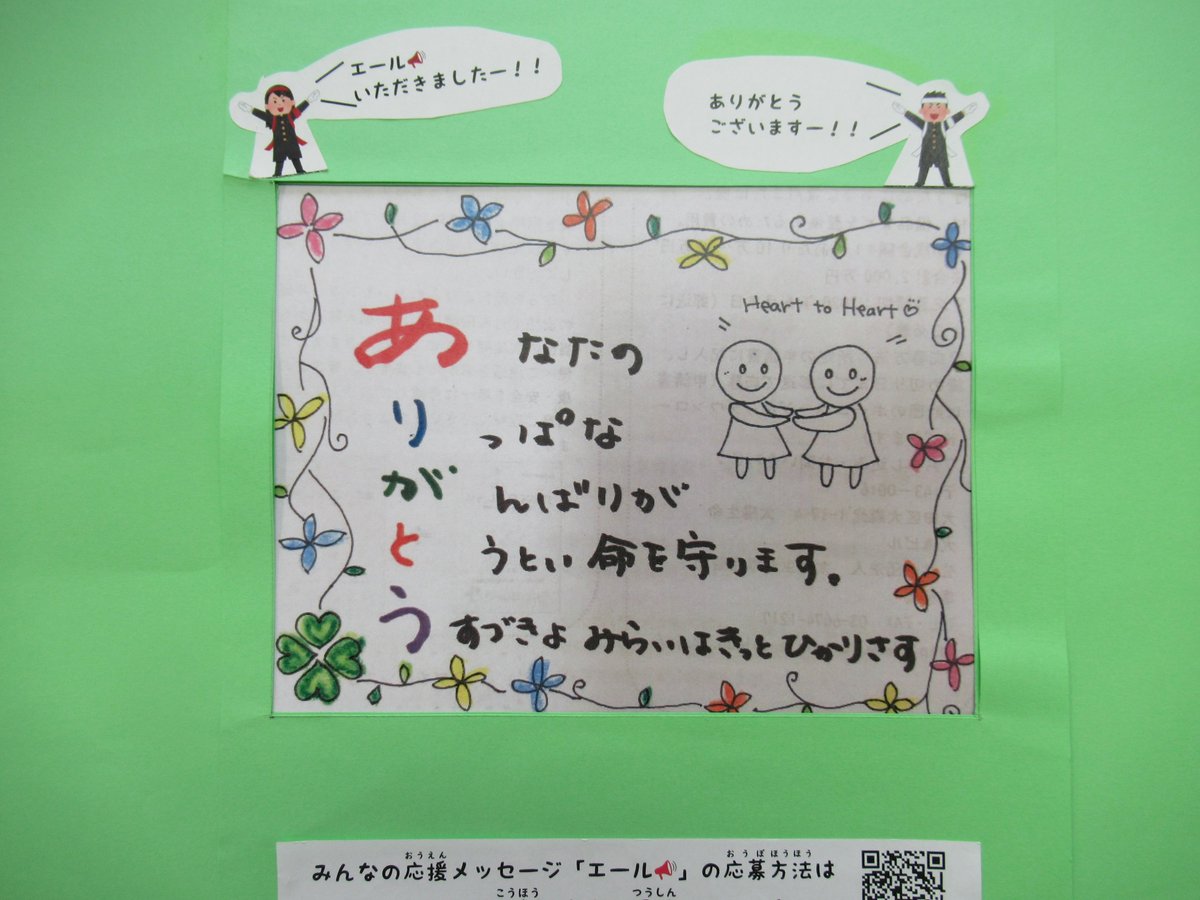 エール📣
いただきましたー！！
ありがとう
ございますー！！
Heart to Heart♡
あなたの
りっぱな
がんばりが
とうとい命を守ります。
うすづきよ みらいはきっとひかりさす
おうえん おうぼほうほう
みんなの応援メッセージ「エール📣」の応募方法は
こうほう つうしん